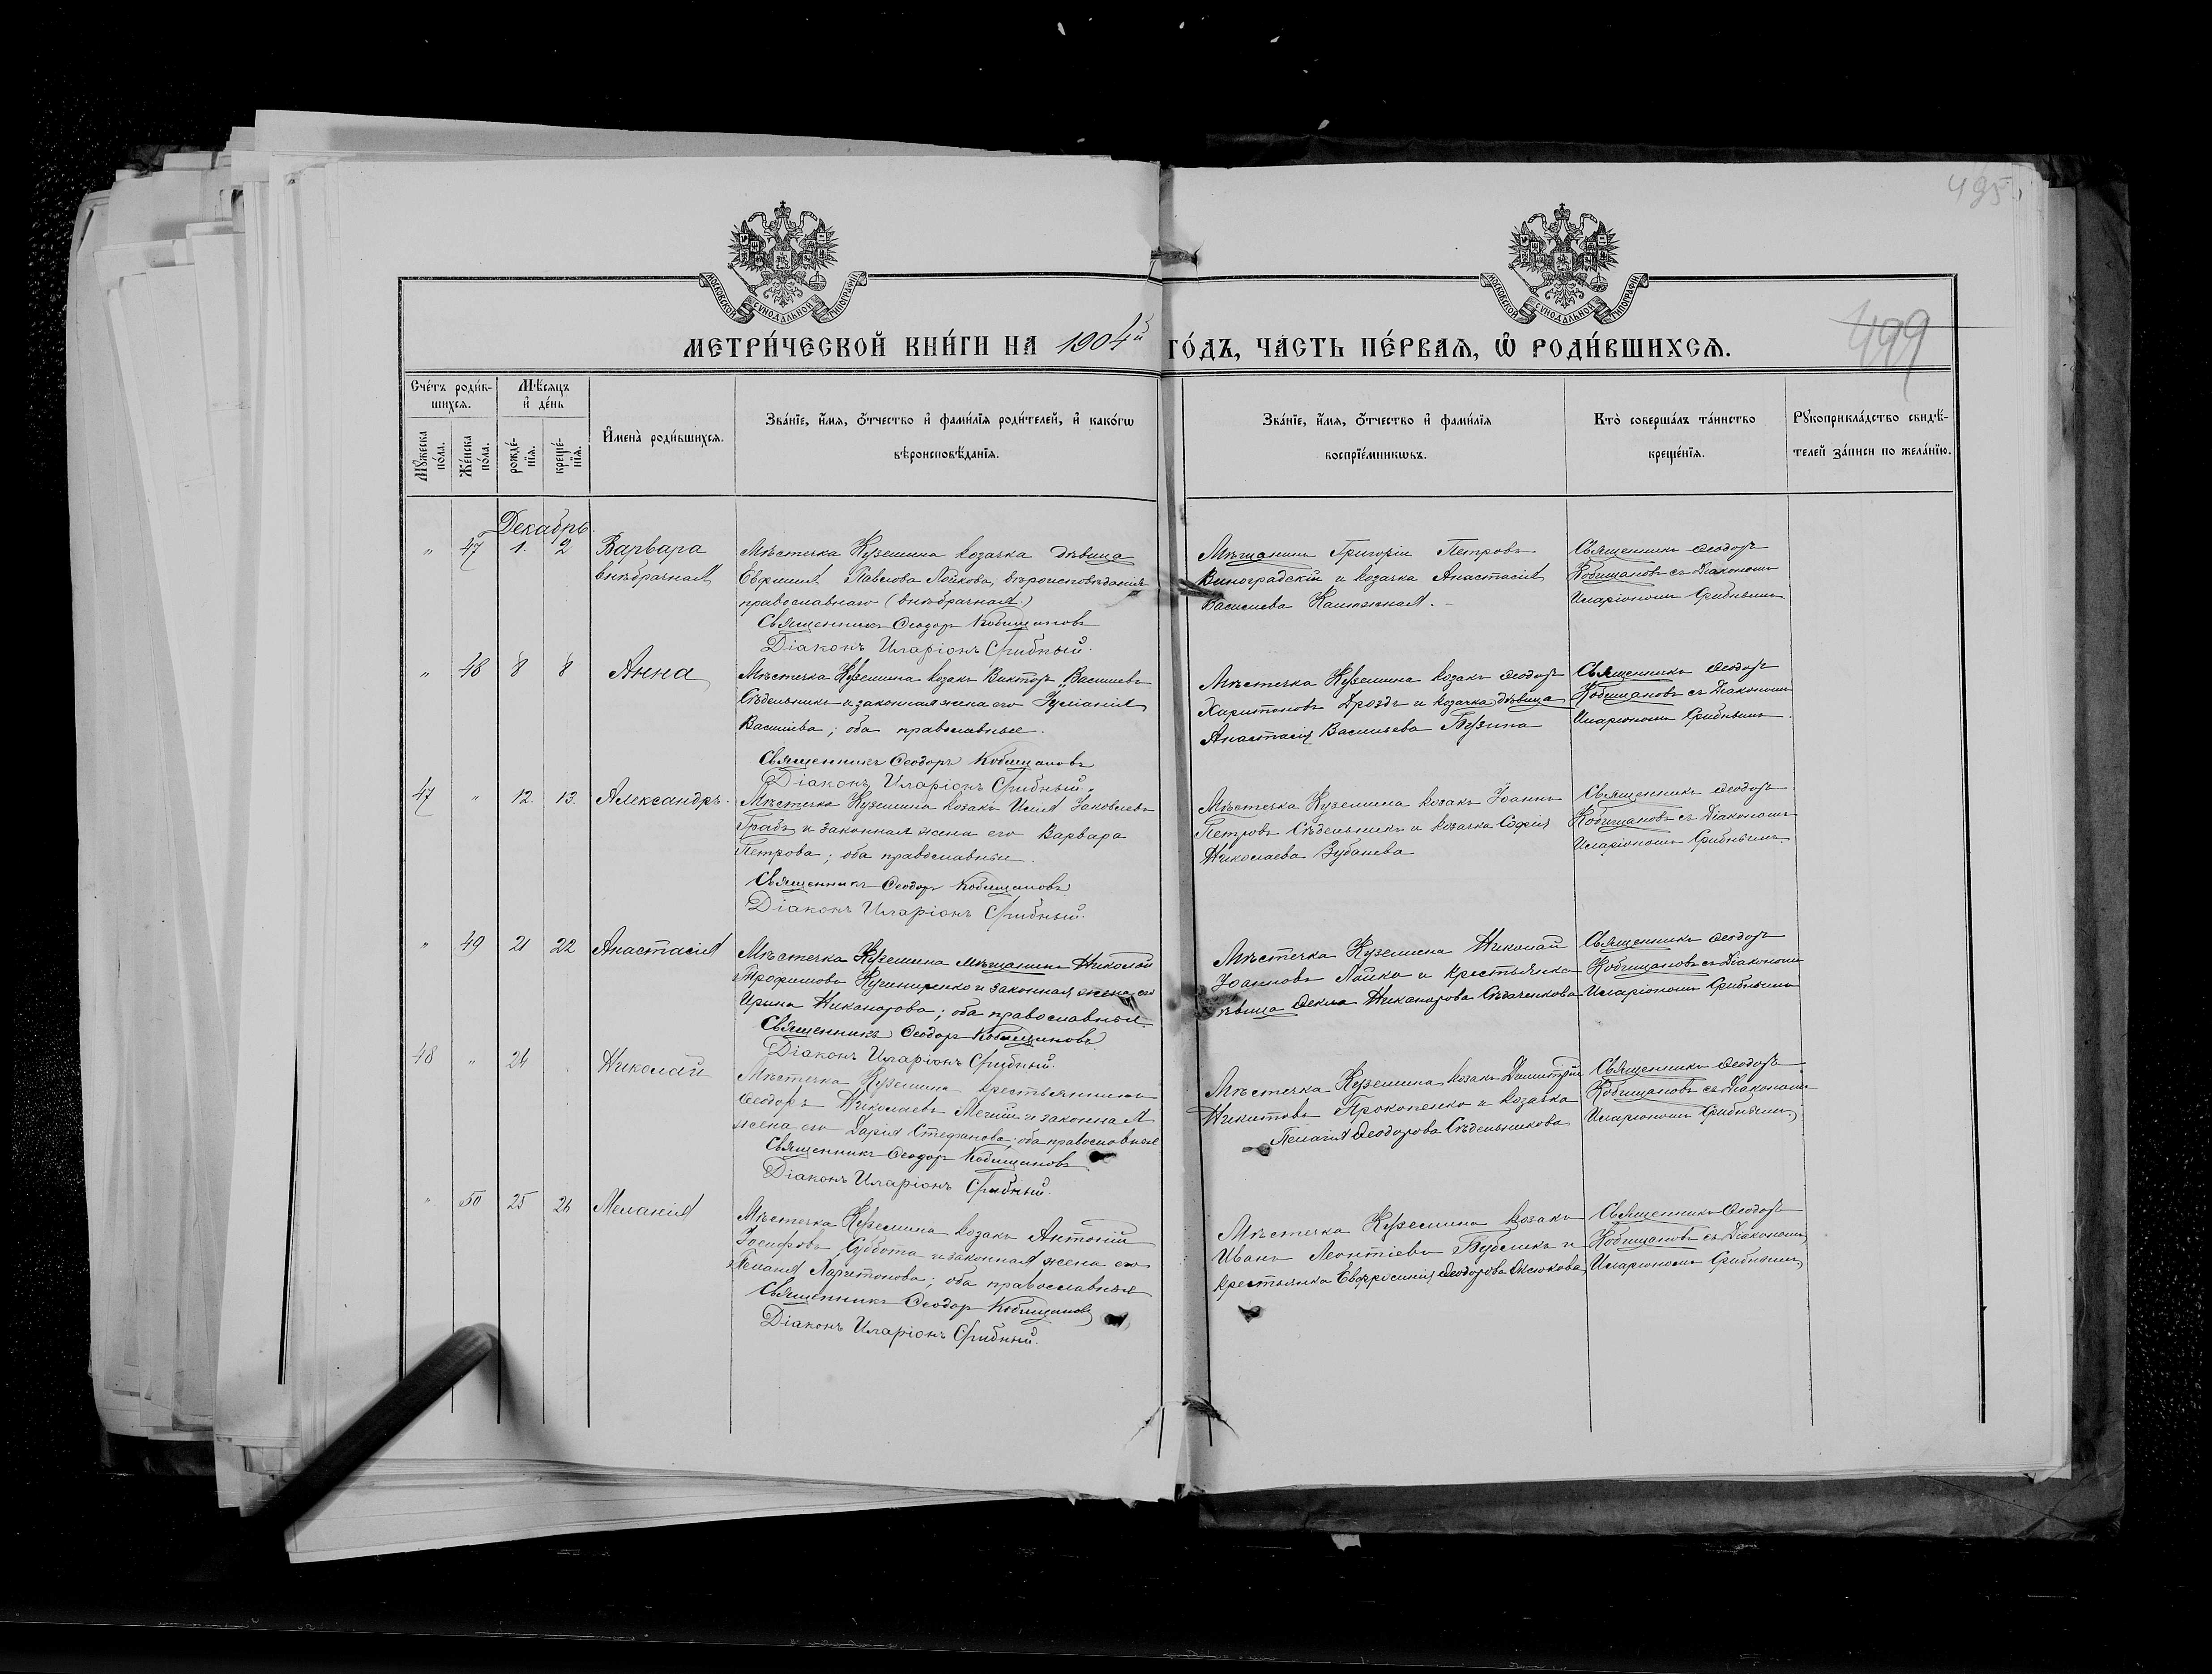 495.
499
МОСКОВСКОЙ СѴНОДАЛЬНОЙ ТИПОГРАФІИ
МОСКОВСКОЙ СѴНОДАЛЬНОЙ ТИПОГРАФІИ
МЕТРИ́ЧЕСКОЙ КНИ́ГИ НА 1904й ГО́ДЪ, ЧА́СТЬ ПЕ́РВАѦ, Ѡ҆ РОДИ́ВШИХСѦ.
Сче́тъ роди́в-
шихсѧ.
Мѣ́сѧцъ
и҆ де́нь
Мꙋ́жеска по́ла.
Же́нска по́ла.
рожде́-нїѧ.
креще́-нїѧ.
И҆мена̀ роди́вшихсѧ.
Зва́нїе, и҆́мѧ, ѻ҆́тчество и҆ фами́лїѧ роди́телей, и҆ како́гѡ
вѣроисповѣ́данїѧ.
Зва́нїе, и҆́мѧ, ѻ҆́тчество и҆ фами́лїѧ
воспрїе́мникѡвъ.
Кто̀ соверша́лъ та́инство
креще́нїѧ.
Рꙋкоприкла́дство свидѣ́-
телей за́писи по жела́нїю.
Декабрь.
" 47 1. 2 Варвара
внѣбрачная
Мѣстечка Куземина козачка дѣвица
Евфимія Павлова Лойкова, вѣроисповѣданія
православнаго (внѣбрачная.)
Священникъ Ѳеодоръ Кобищановъ
Діаконъ Иларіонъ Срибный.
Мѣщанинъ Григорій Петровъ
Виноградскій и козачка Анастасія
Василиева
Священникъ Ѳеодоръ
Кобищановъ съ Діакономъ
Иларіономъ Срибнымъ
" 48 8 8 Анна
Мѣстечка Куземина козакъ Викторъ Васильевъ
Сѣдельникъ и законная жена его Іуліанія
Васильева; оба православные.
Священникъ Ѳеодоръ Кобищановъ
Діаконъ Иларіонъ Срибный.
Мѣстечка Куземина козакъ Ѳеодоръ
Харитоновъ Дроздъ и козачка дѣвица
Анастасія Васильева
Священникъ Ѳеодоръ
Кобищановъ съ Діакономъ
Иларіономъ Срибнымъ.
47 " 12. 13. Александръ.
Мѣстечка Куземина козакъ Илія Іаковлевъ
Грабъ и законная жена его Варвара
Петрова; оба православные.
Священникъ Ѳеодоръ Кобищановъ
Діаконъ Иларіонъ Срибный.
Мѣстечка Куземина козакъ Іоаннъ
Петровъ Сѣдельникъ и козачка Софія
Николаева Зубанева
Священникъ Ѳеодоръ
Кобищановъ съ Діакономъ
Иларіономъ Срибнымъ.
" 49 21 22 Анастасія
Мѣстечка Куземина мѣщанинъ Николай
Трофимовъ и законная жена его
Ирина Никанорова; оба православные.
Священникъ Ѳеодоръ Кобищановъ
Діаконъ Иларіонъ Срибный.
Мѣстечка Куземина Николай
Іоанновъ Лойко и крестьянка
дѣвица Ѳекла Никанорова
Священникъ Ѳеодоръ
Кобищановъ съ Діакономъ
Иларіономъ Срибнымъ
48 " 24 Николай
Мѣстечка Куземина крестьянинъ
Ѳеодоръ Николаевъ и законная
жена его Дарія Стефанова; оба православные
Священникъ Ѳеодоръ Кобищановъ
Діаконъ Иларіонъ Срибный.
Мѣстечка Куземина козакъ Димитрій
Никитовъ Прокопенко и козачка
Пелагія Ѳеодорова Сѣдельникова
Священникъ Ѳеодоръ
Кобищановъ съ Діакономъ
Иларіономъ Срибнымъ
" 50 25 26 Меланія
Мѣстечка Куземина козакъ Антоній
Іосифовъ Суббота и законная жена его
Пелагія Харитонова; оба православные
Священникъ Ѳеодоръ Кобищановъ
Діаконъ Иларіонъ Срибный.
Мѣстечка Куземина козакъ
Иванъ Леонтіевъ Бубликъ и
крестьянка Евфросинія Ѳеодорова
Священникъ Ѳеодоръ
Кобищановъ съ Діакономъ
Иларіономъ Срибнымъ